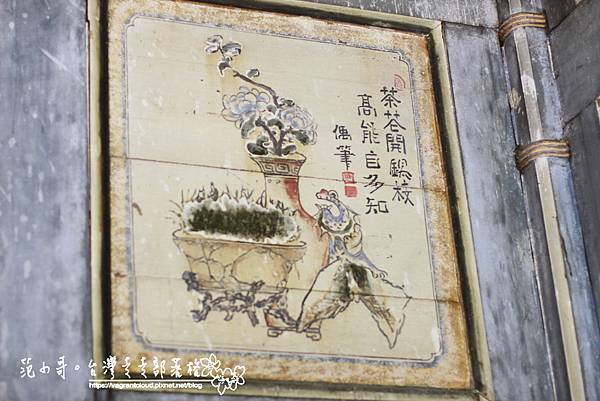 茶茗開校
高能自多知
偶筆
范小哥。台灣走走部落格
https://vagrantcloud.pixnet.net/blog